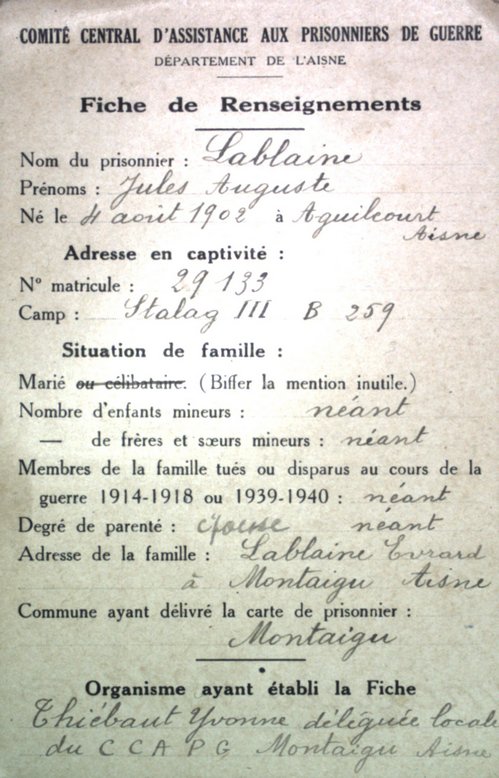 COMITÉ CENTRAL D'ASSISTANCE AUX PRISONNIERS DE GUERRE
DÉPARTEMENT DE L'AISNE
Fiche de Renseignements
Nom du prisonnier : Lablaine
Prénoms : Jules Auguste
Né le 4 août 1902 à Aguilcourt
Aisne
Adresse en captivité :
N° matricule : 29 133
Camp : Stalag III B 259
Situation de famille :
Marié ou célibataire. (Biffer la mention inutile.)
Nombre d'enfants mineurs : néant
— de frères et sœurs mineurs : néant
Membres de la famille tués ou disparus au cours de la
guerre 1914-1918 ou 1939-1940 : néant
Degré de parenté : néant
Adresse de la famille : Lablaine Evrard
à Montaigu Aisne
Commune ayant délivré la carte de prisonnier :
Montaigu
Organisme ayant établi la Fiche
Thiébaut Yvonne déléguée locale
du C C A P G Montaigu Aisne